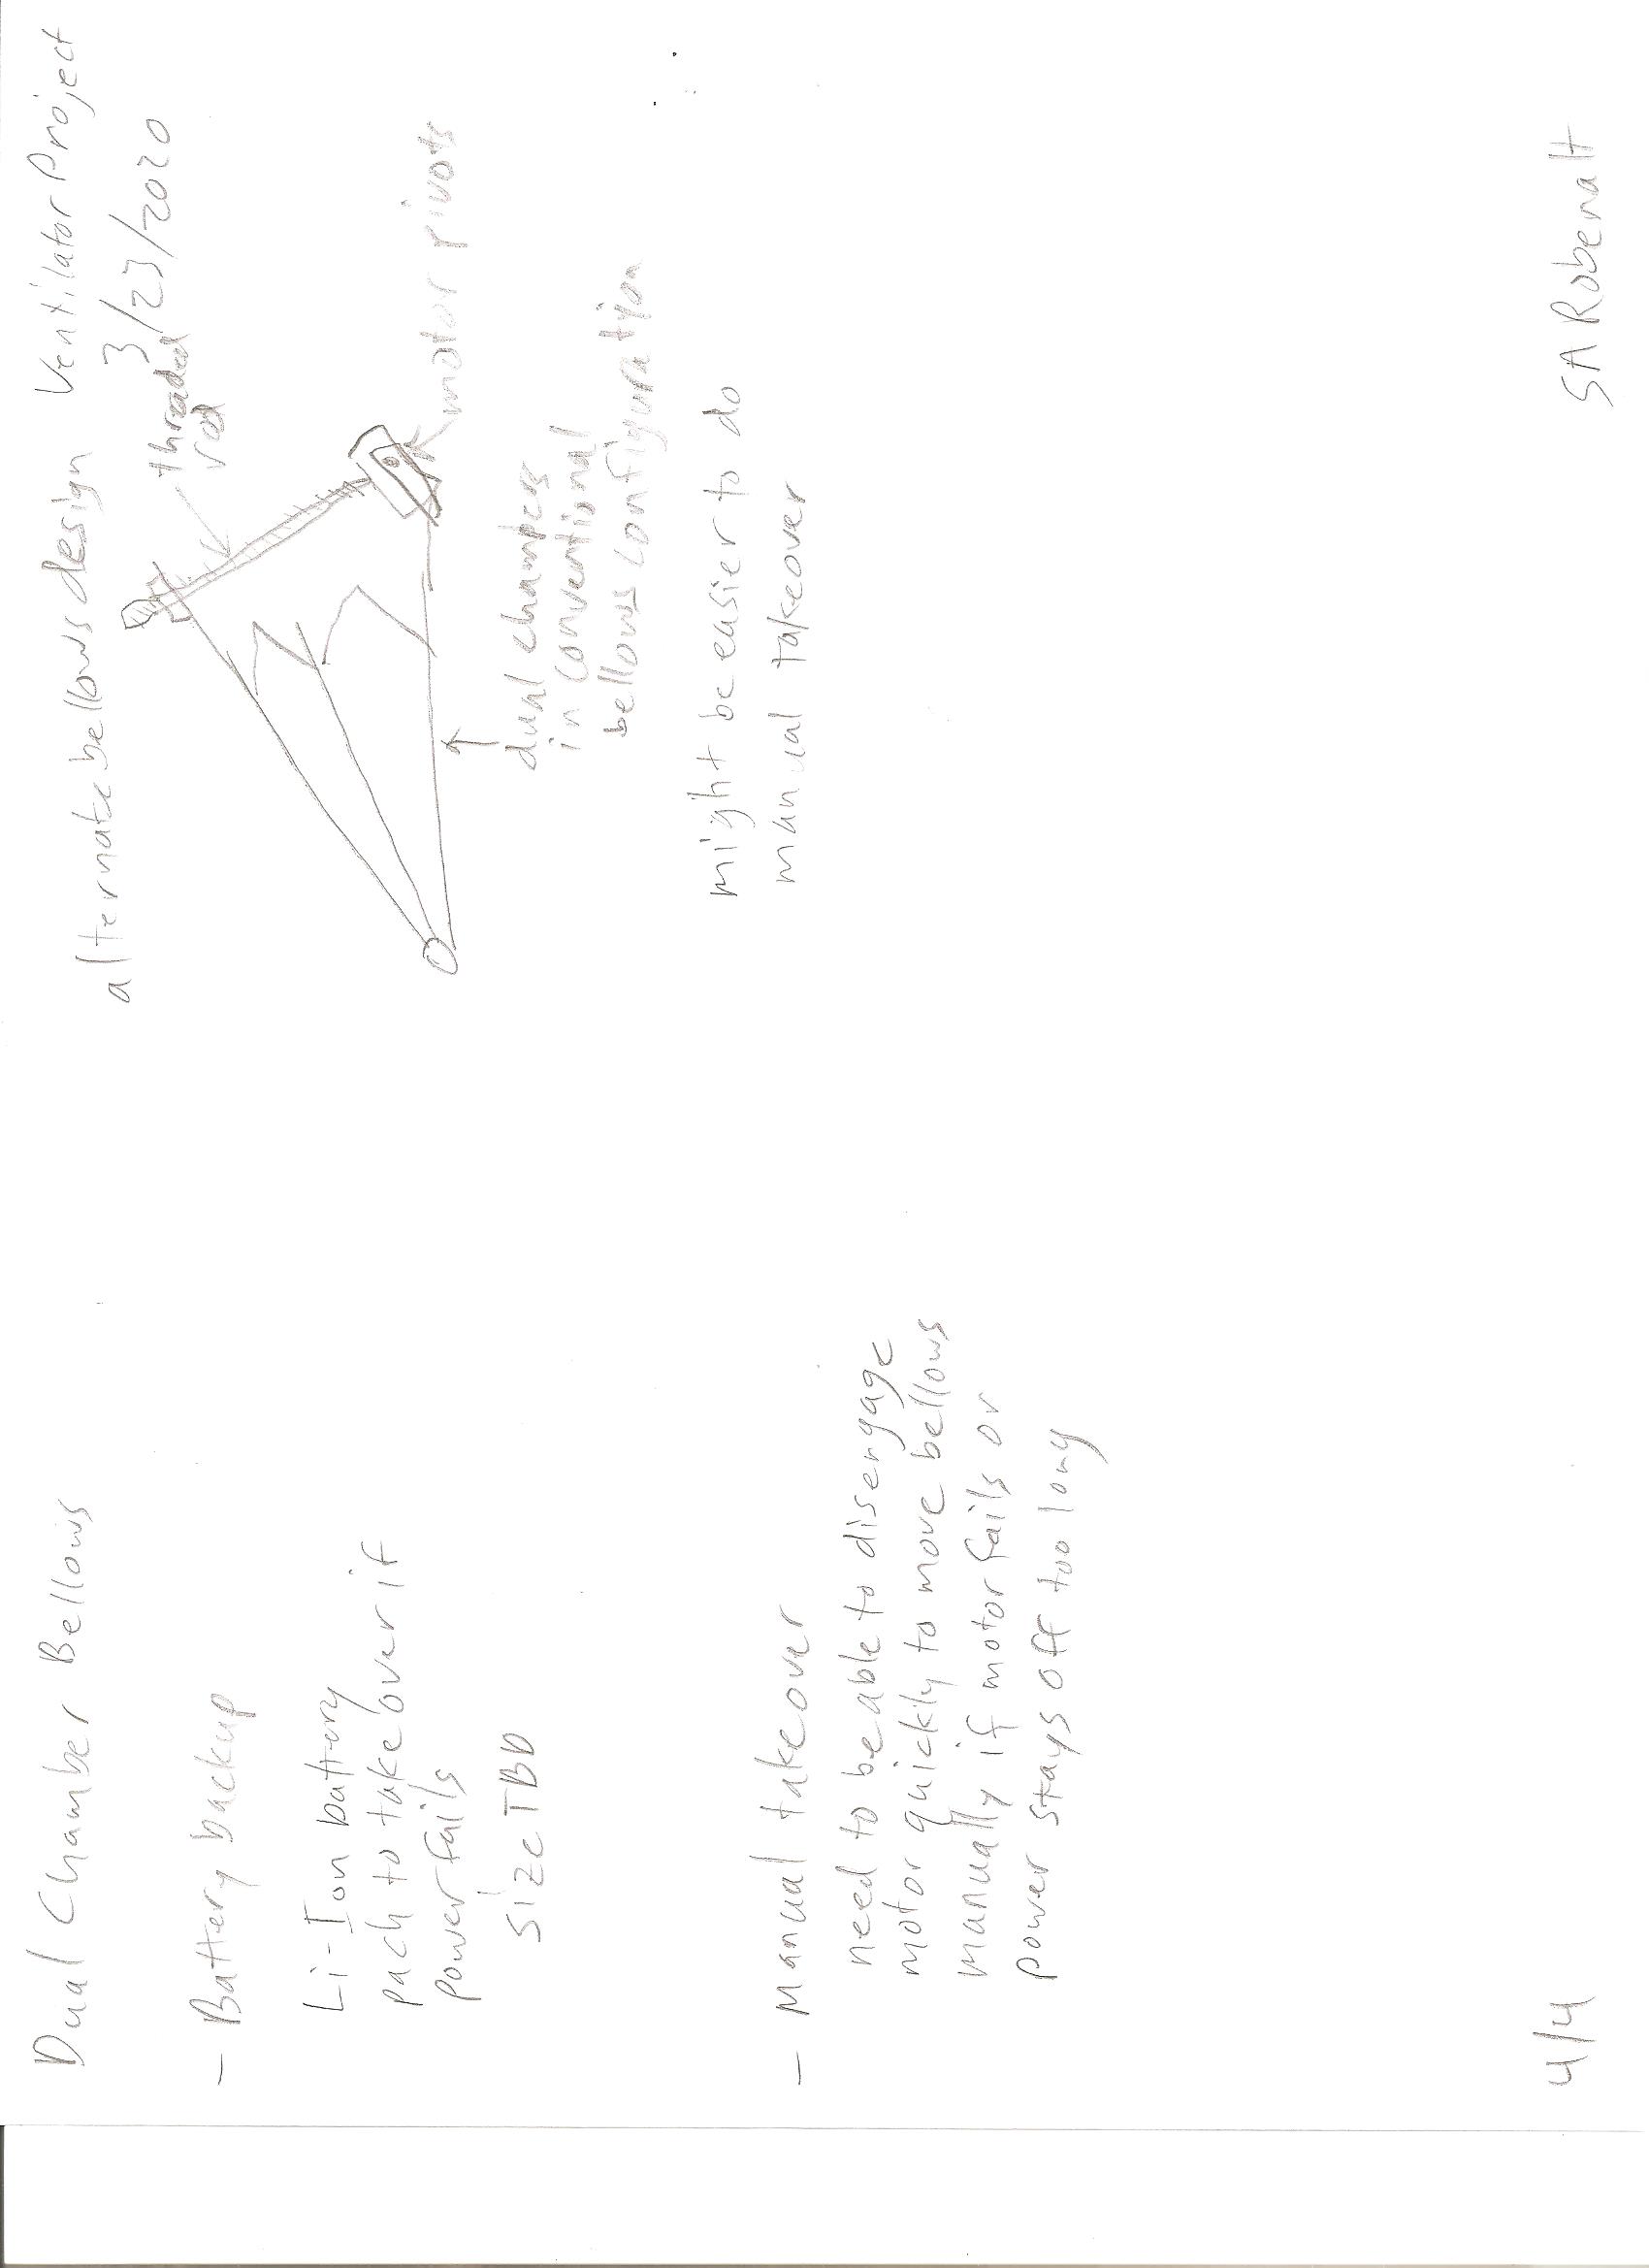 Dual Chamber Bellows
- Battery backup
Li-Ion battery
pach to take over if
power fails
size TBD
- Manual takeover
need to be able to disengage
motor quickly to move bellows
manually if motor fails or
power stays off too long
4/4
Ventilator Project
3/23/2020
alternate bellows design
thraded
rod
motor pivots
dual chambers
in conventional
bellows configuration
might be easier to do
manual takeover
SA Robenalt